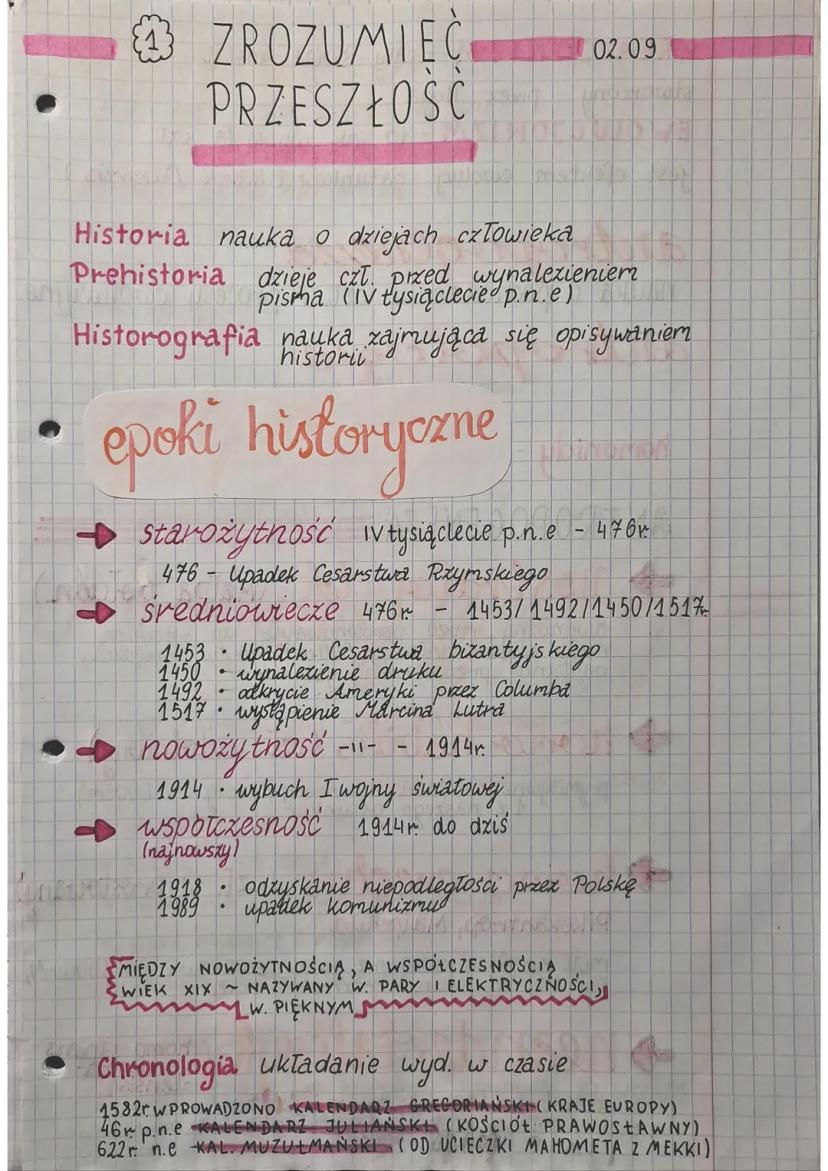 1 ZROZUMIEĆ 02.09
PRZESZŁOŚĆ
Historia nauka o dziejach człowieka
Prehistoria dzieje czł. przed wynalezieniem
pisma (IV tysiąclecie p.n.e)
Historografia nauka zajmująca się opisywaniem
historii
epoki historyczne
→ starożytność IV tysiąclecie p.n.e - 476r.
476 - Upadek Cesarstwa Rzymskiego
→ średniowiecze 476r. - 1453/1492/1450/1517r.
1453 • Upadek Cesarstwa bizantyjskiego
1450 • wynalezienie druku
1492 • odkrycie Ameryki przez Columba
1517 • wystąpienie Marcina Lutra
→ nowożytność -11- - 1914r.
1914 • wybuch I wojny światowej
→ współczesność 1914r. do dziś
(najnowszy)
1918 • odzyskanie niepodległości przez Polskę
1989 • upadek komunizmu
MIĘDZY NOWOŻYTNOŚCIĄ, A WSPÓŁCZESNOŚCIĄ
WIEK XIX ~ NAZYWANY W. PARY I ELEKTRYCZNOŚCI,
W. PIĘKNYM
Chronologia układanie wyd. w czasie
1582r. WPROWADZONO KALENDARZ GREGORIAŃSKI (KRAJE EUROPY)
46r. p.n.e KALENDARZ JULIAŃSKI (KOŚCIÓŁ PRAWOSŁAWNY)
622r. n.e KAL. MUZUŁMAŃSKI (OD UCIECZKI MAHOMETA Z MEKKI)